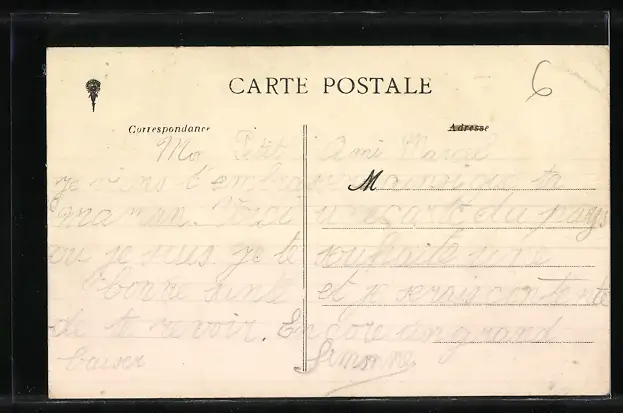 CARTE POSTALE
6
Correspondance
Adresse
M
Mo Petit Ami Marcel
je viens t embrasse ainsi que ta
maman. Voici une carte du pays
ou je suis je te souhaite une
bonne sante et je serais contente
de te revoir. Encore un grand
baiser Simonne